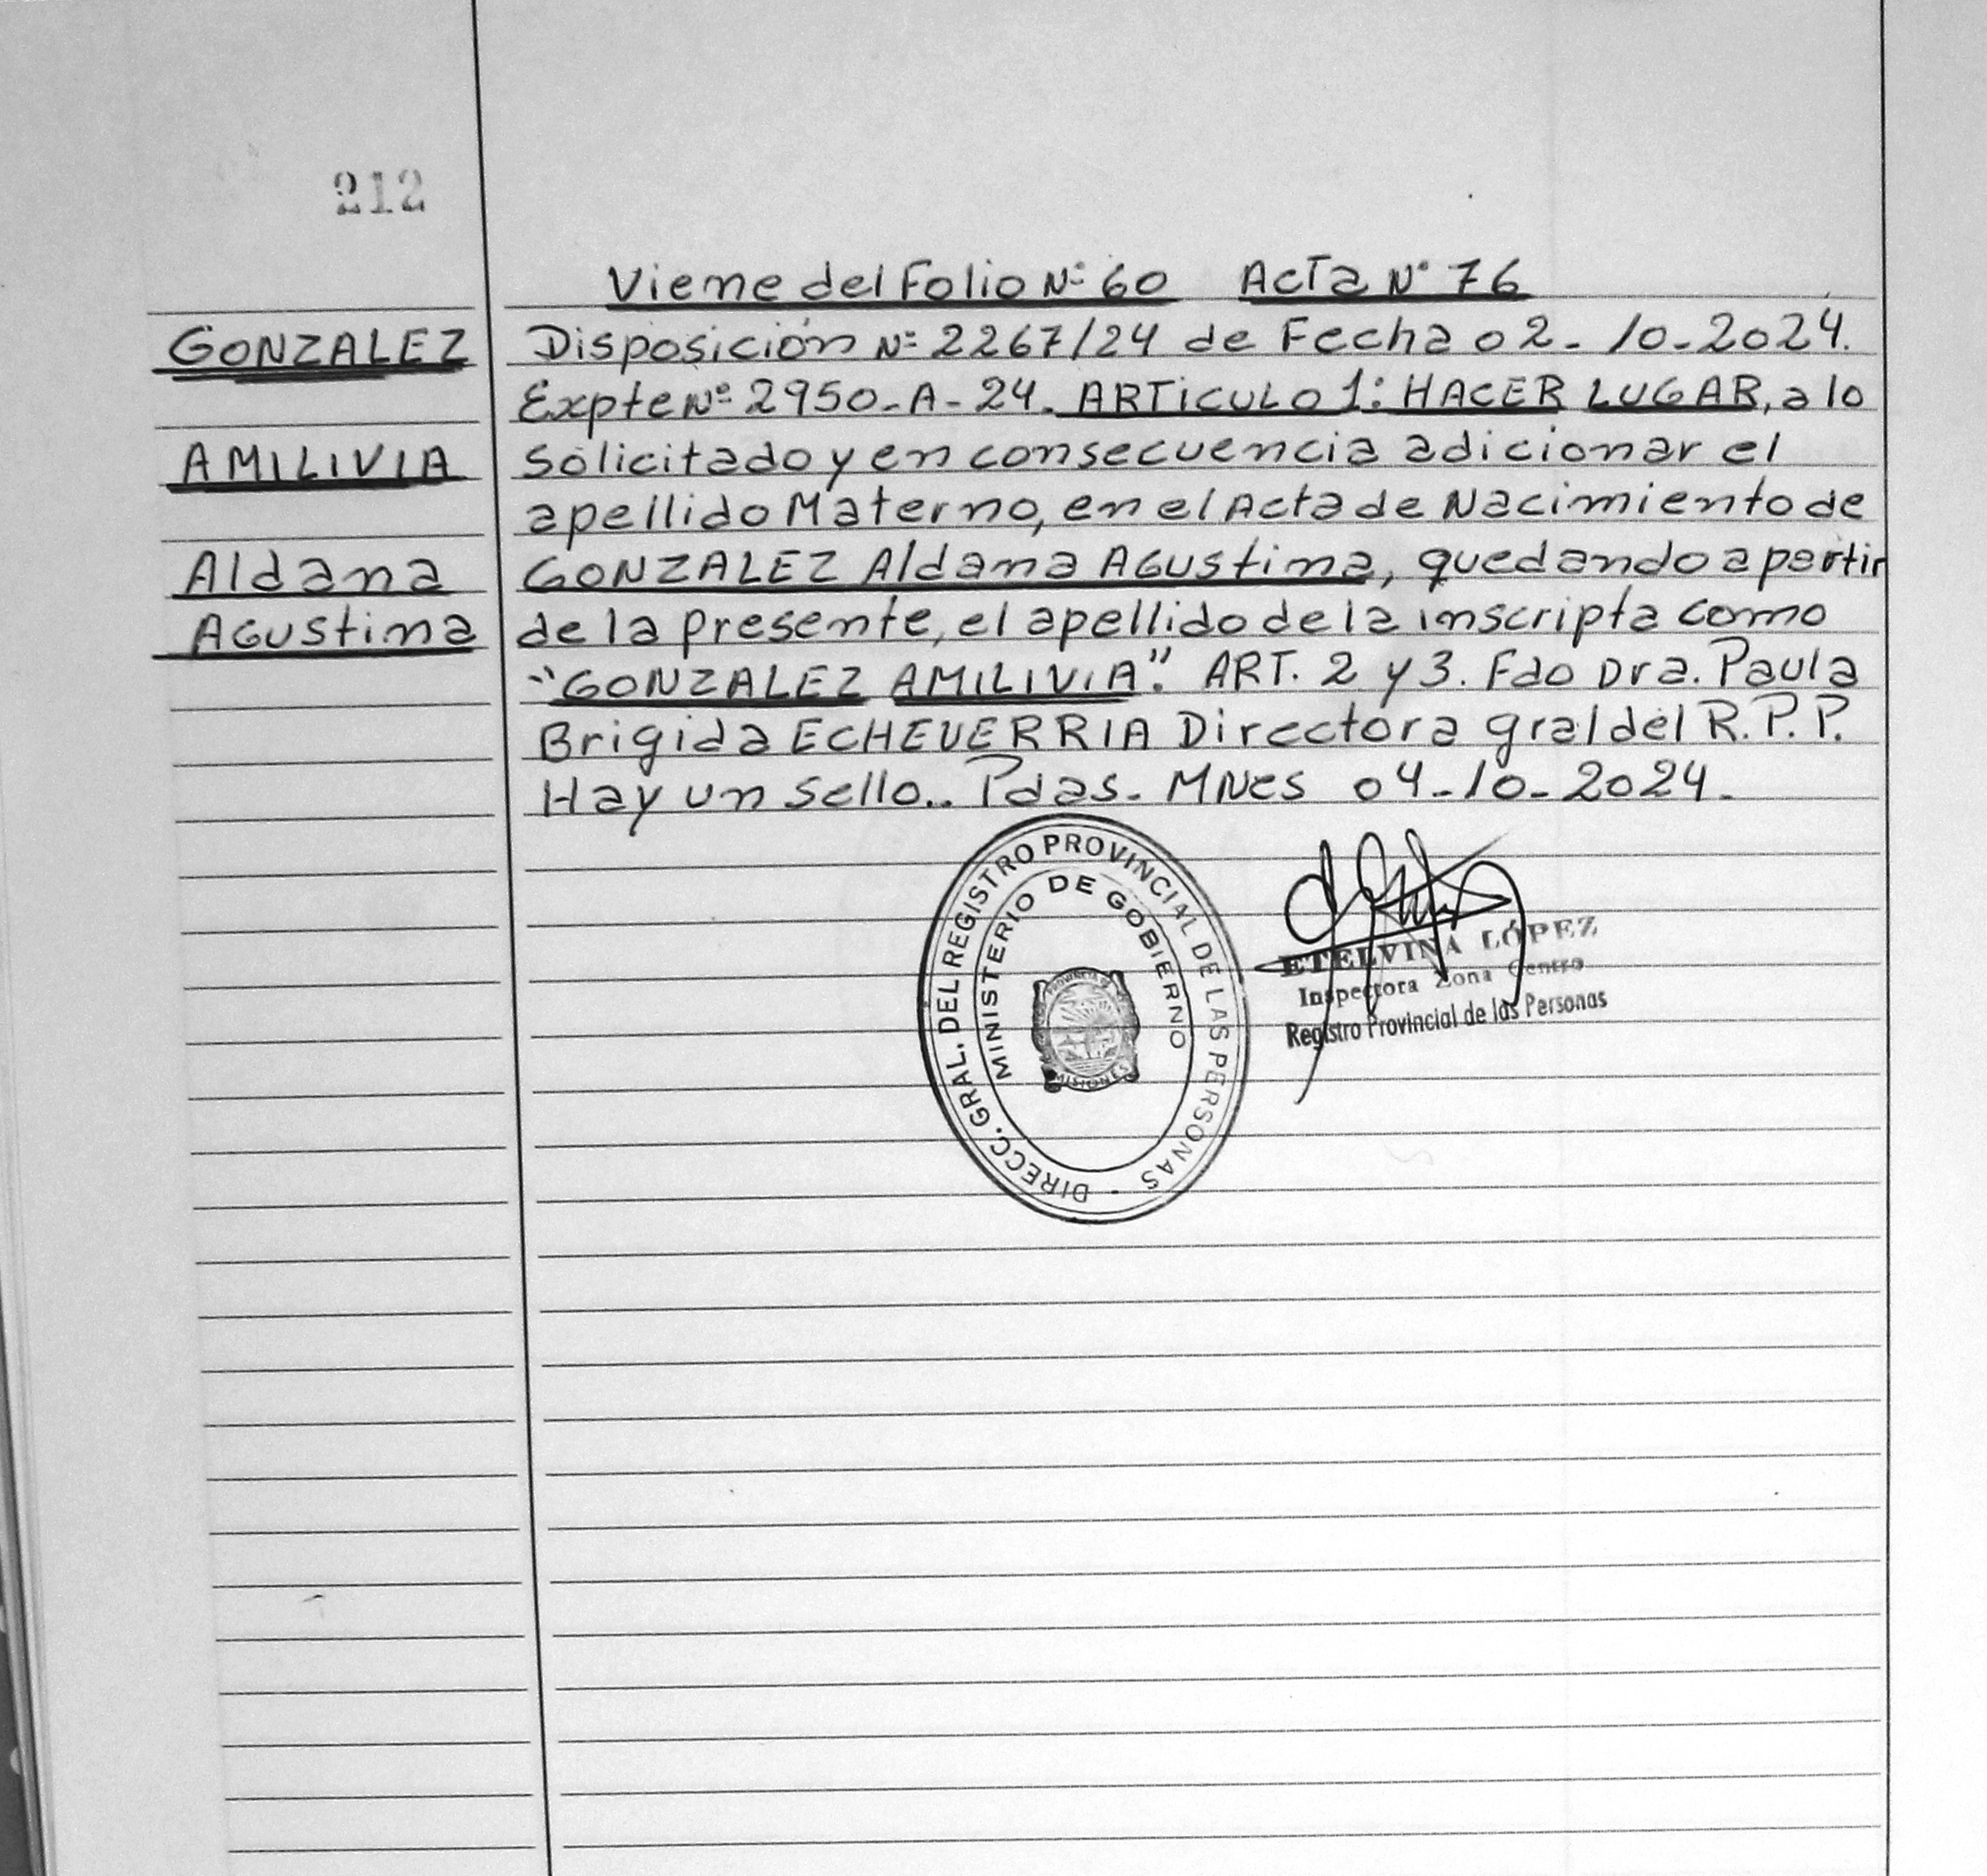 212
Viene del Folio Nº 60 Acta Nº 76
GONZALEZ
Disposición Nº 2267/24 de Fecha 02-10-2024.
Expte Nº 2950-A-24. ARTICULO 1: HACER LUGAR, a lo
AMILIVIA
solicitado y en consecuencia adicionar el
apellido Materno, en el Acta de Nacimiento de
Aldana
GONZALEZ Aldana Agustina, quedando a partir
Agustina
de la presente, el apellido de la inscripta como
"GONZALEZ AMILIVIA". ART. 2 y 3. Fdo Dra. Paula
Brigida ECHEVERRIA Directora gral del R.P.P.
Hay un sello.. Pdas. MNes 04-10-2024.
DIRECC. GRAL. DEL REGISTRO PROVINCIAL DE LAS PERSONAS
MINISTERIO DE GOBIERNO
PROVINCIA DE
MISIONES
ETELVINA LÓPEZ
Inspectora Zona Centro
Registro Provincial de las Personas